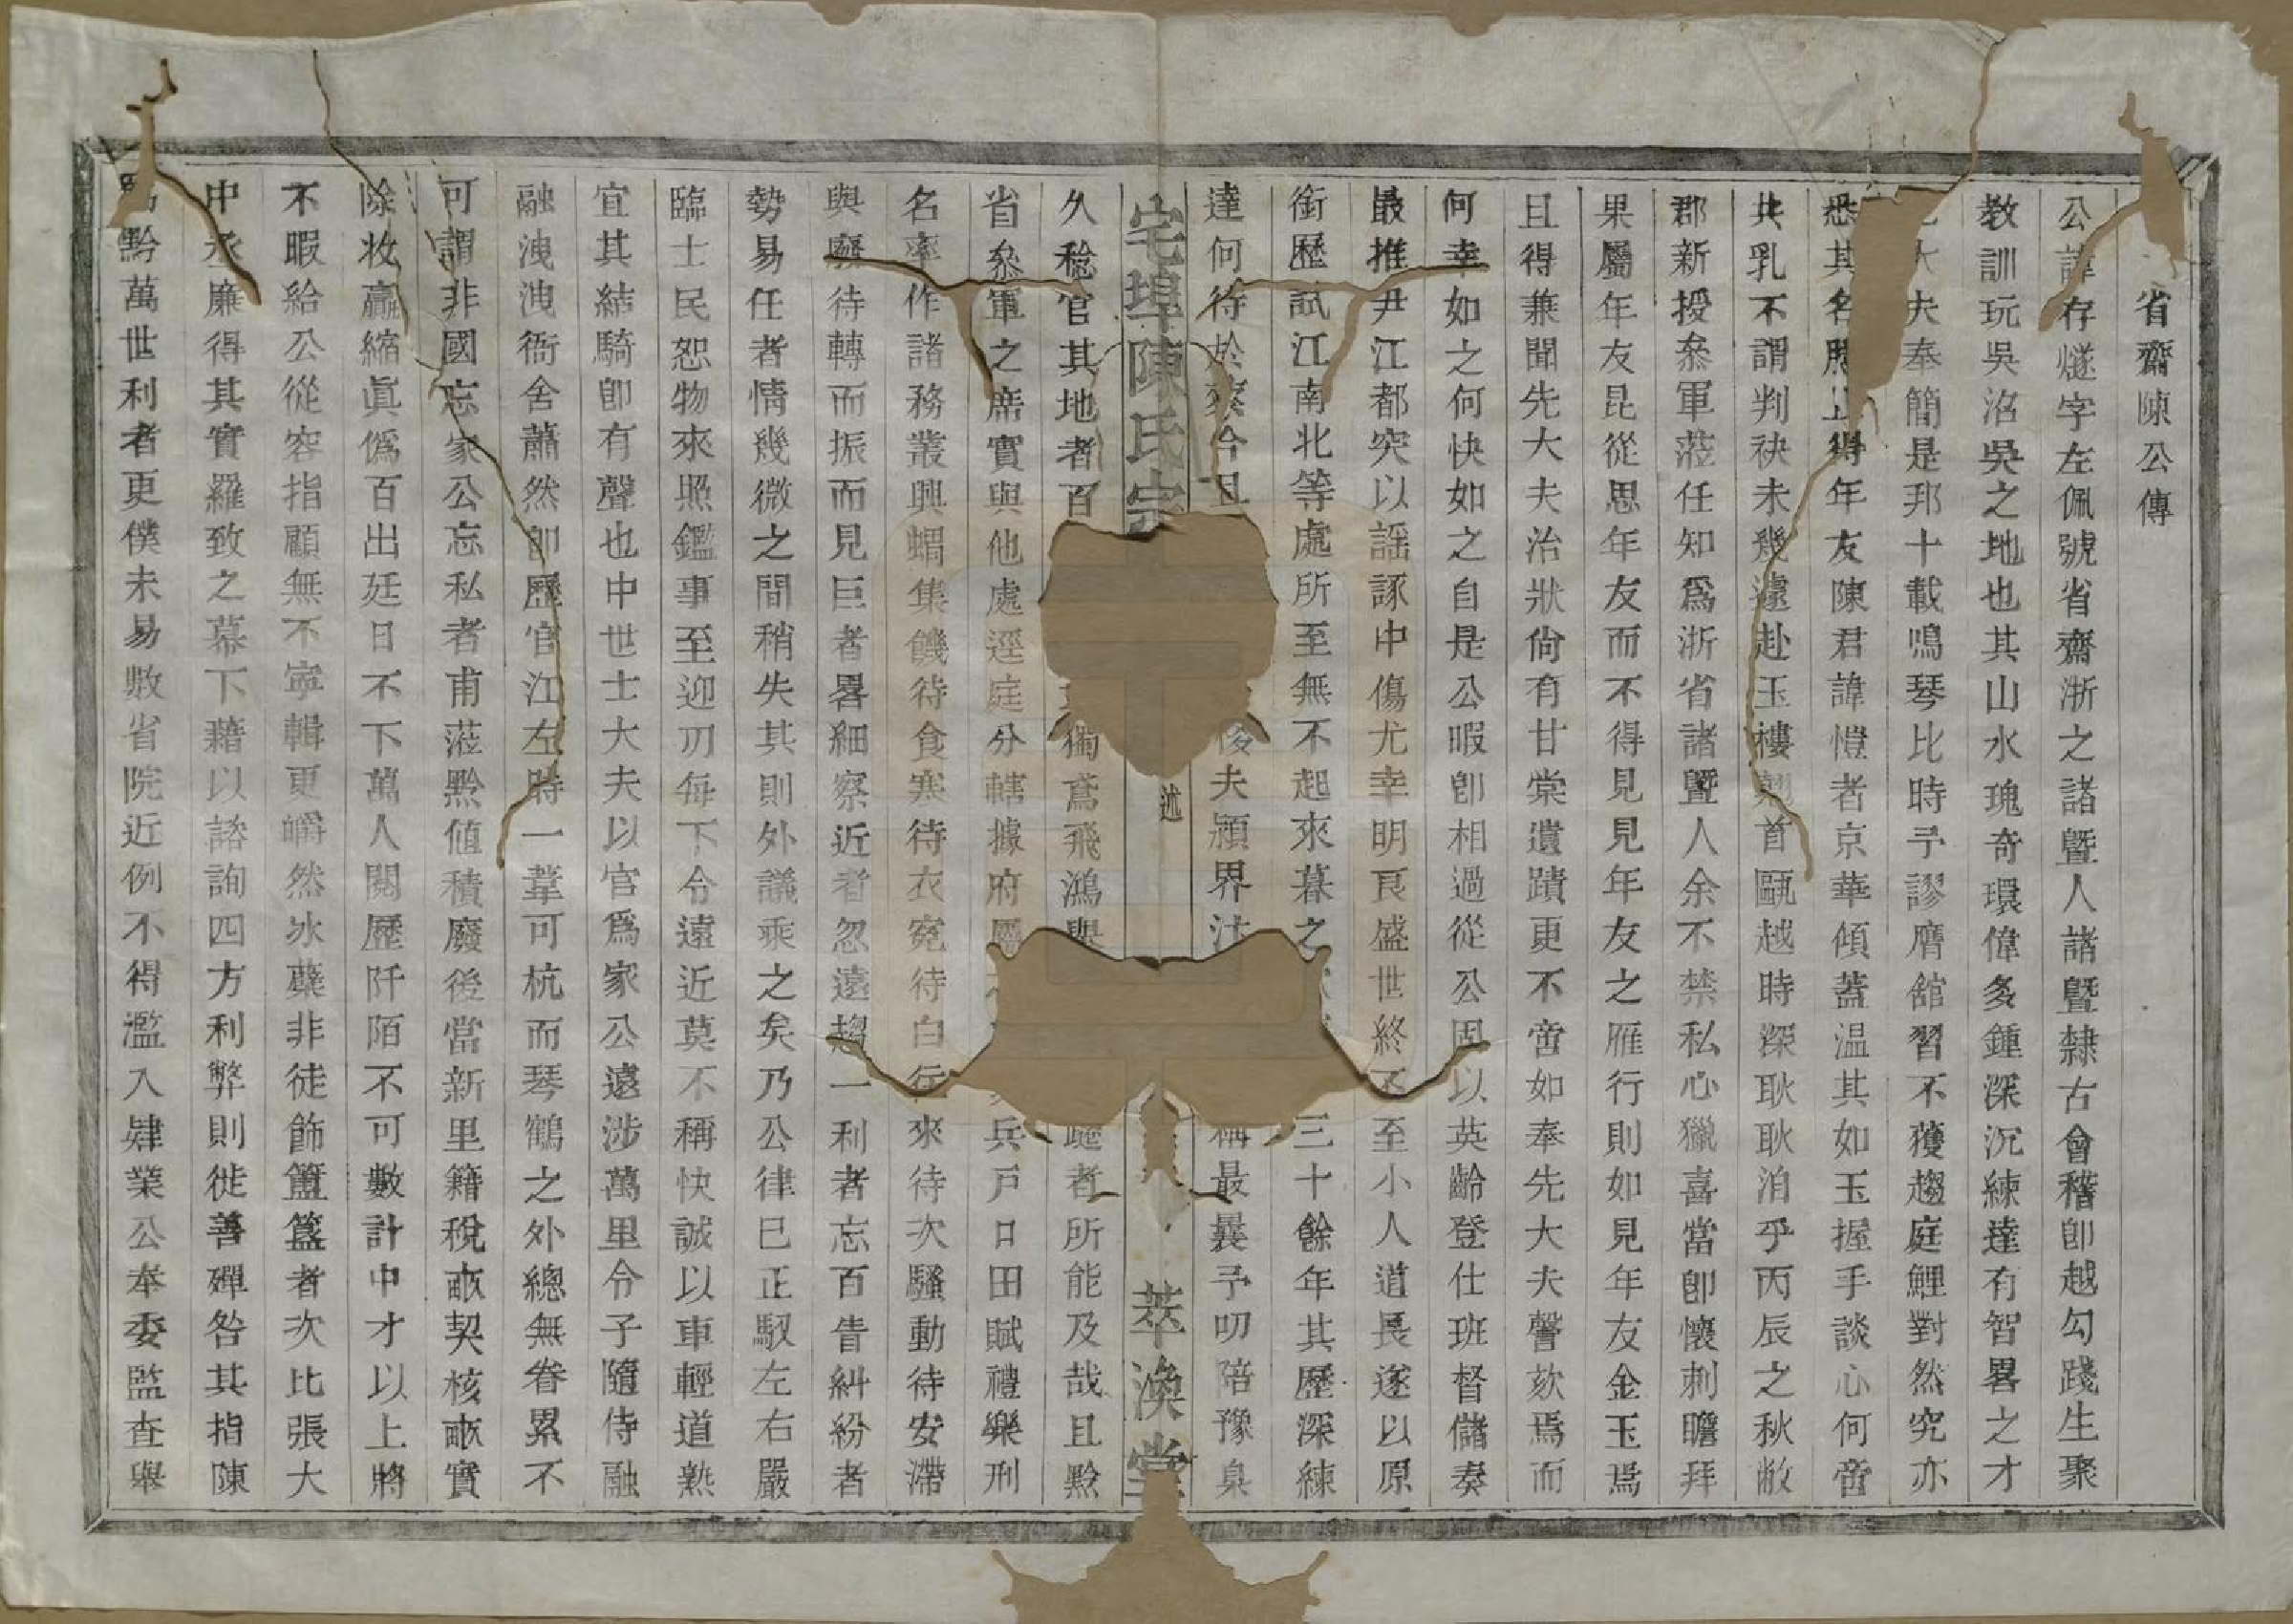 省齋陳公傳
公諱存燧字左佩號省齋浙之諸暨人諸暨隸古會稽卽越勾踐生聚
教訓玩吳沼吳之地也其山水瑰奇環偉多鍾深沉練達有智畧之才
大夫奉簡是邦十載鳴琴比時予謬膺舘習不獲趨庭鯉對然究亦
悉其名得年友陳君諱愷者京華傾蓋温其如玉握手談心何啻
共乳不謂判袂未幾遠赴玉樓翹首甌越時深耿耿洎乎丙辰之秋敝
郡新授叅軍蒞任知爲浙省諸暨人余不禁私心獵喜當卽懷刺瞻拜
果屬年友昆從思年友而不得見見年友之雁行則如見年友金玉焉
且得兼聞先大夫治狀尙有甘棠遺蹟更不啻如奉先大夫謦欬焉而
何幸如之何快如之自是公暇卽相過從公固以英齡登仕班督儲奏
最推尹江都突以謡諑中傷尤幸明良盛世終不至小人道長遂以原
銜歷試江南北等處所至無不起來暮之三十餘年其歷深練
達何待於蔡今且後夫頴界汁稱最曩予叨陪豫臬
宅埠陳氏宗
述
萃渙堂
久稔官其地者百獨鳶飛鴻與踀者所能及哉且黔
省叅軍之席實與他處逕庭分轄據府屬兵戸口田賦禮樂刑
名率作諸務叢興蝟集饑待食寒待衣寃待白行來待次騷動待安滯
與廢待轉而振而見巨者畧細察近者忽遠趨一利者忘百眚糾紛者
勢易任者情幾微之間稍失其則外議乘之矣乃公律已正馭左右嚴
臨士民恕物來照鑑事至迎刃每下令遠近莫不稱快誠以車輕道熟
宜其結騎卽有聲也中世士大夫以官爲家公遠涉萬里令子隨侍融
融洩洩衙舍蕭然卽歷官江左時一葦可杭而琴鶴之外總無眷累不
可謂非國忘家公忘私者甫蒞黔值積廢後當新里籍稅畝契核畝實
除收贏縮眞僞百出廷日不下萬人閱歷阡陌不可數計中才以上將
不暇給公從容指顧無不寧輯更皭然冰蘗非徒飾簠簋者次比張大
中丞廉得其實羅致之幕下藉以諮詢四方利弊則徙善殫咎其指陳
黔萬世利者更僕未易數省院近例不得濫入肄業公奉委監查舉